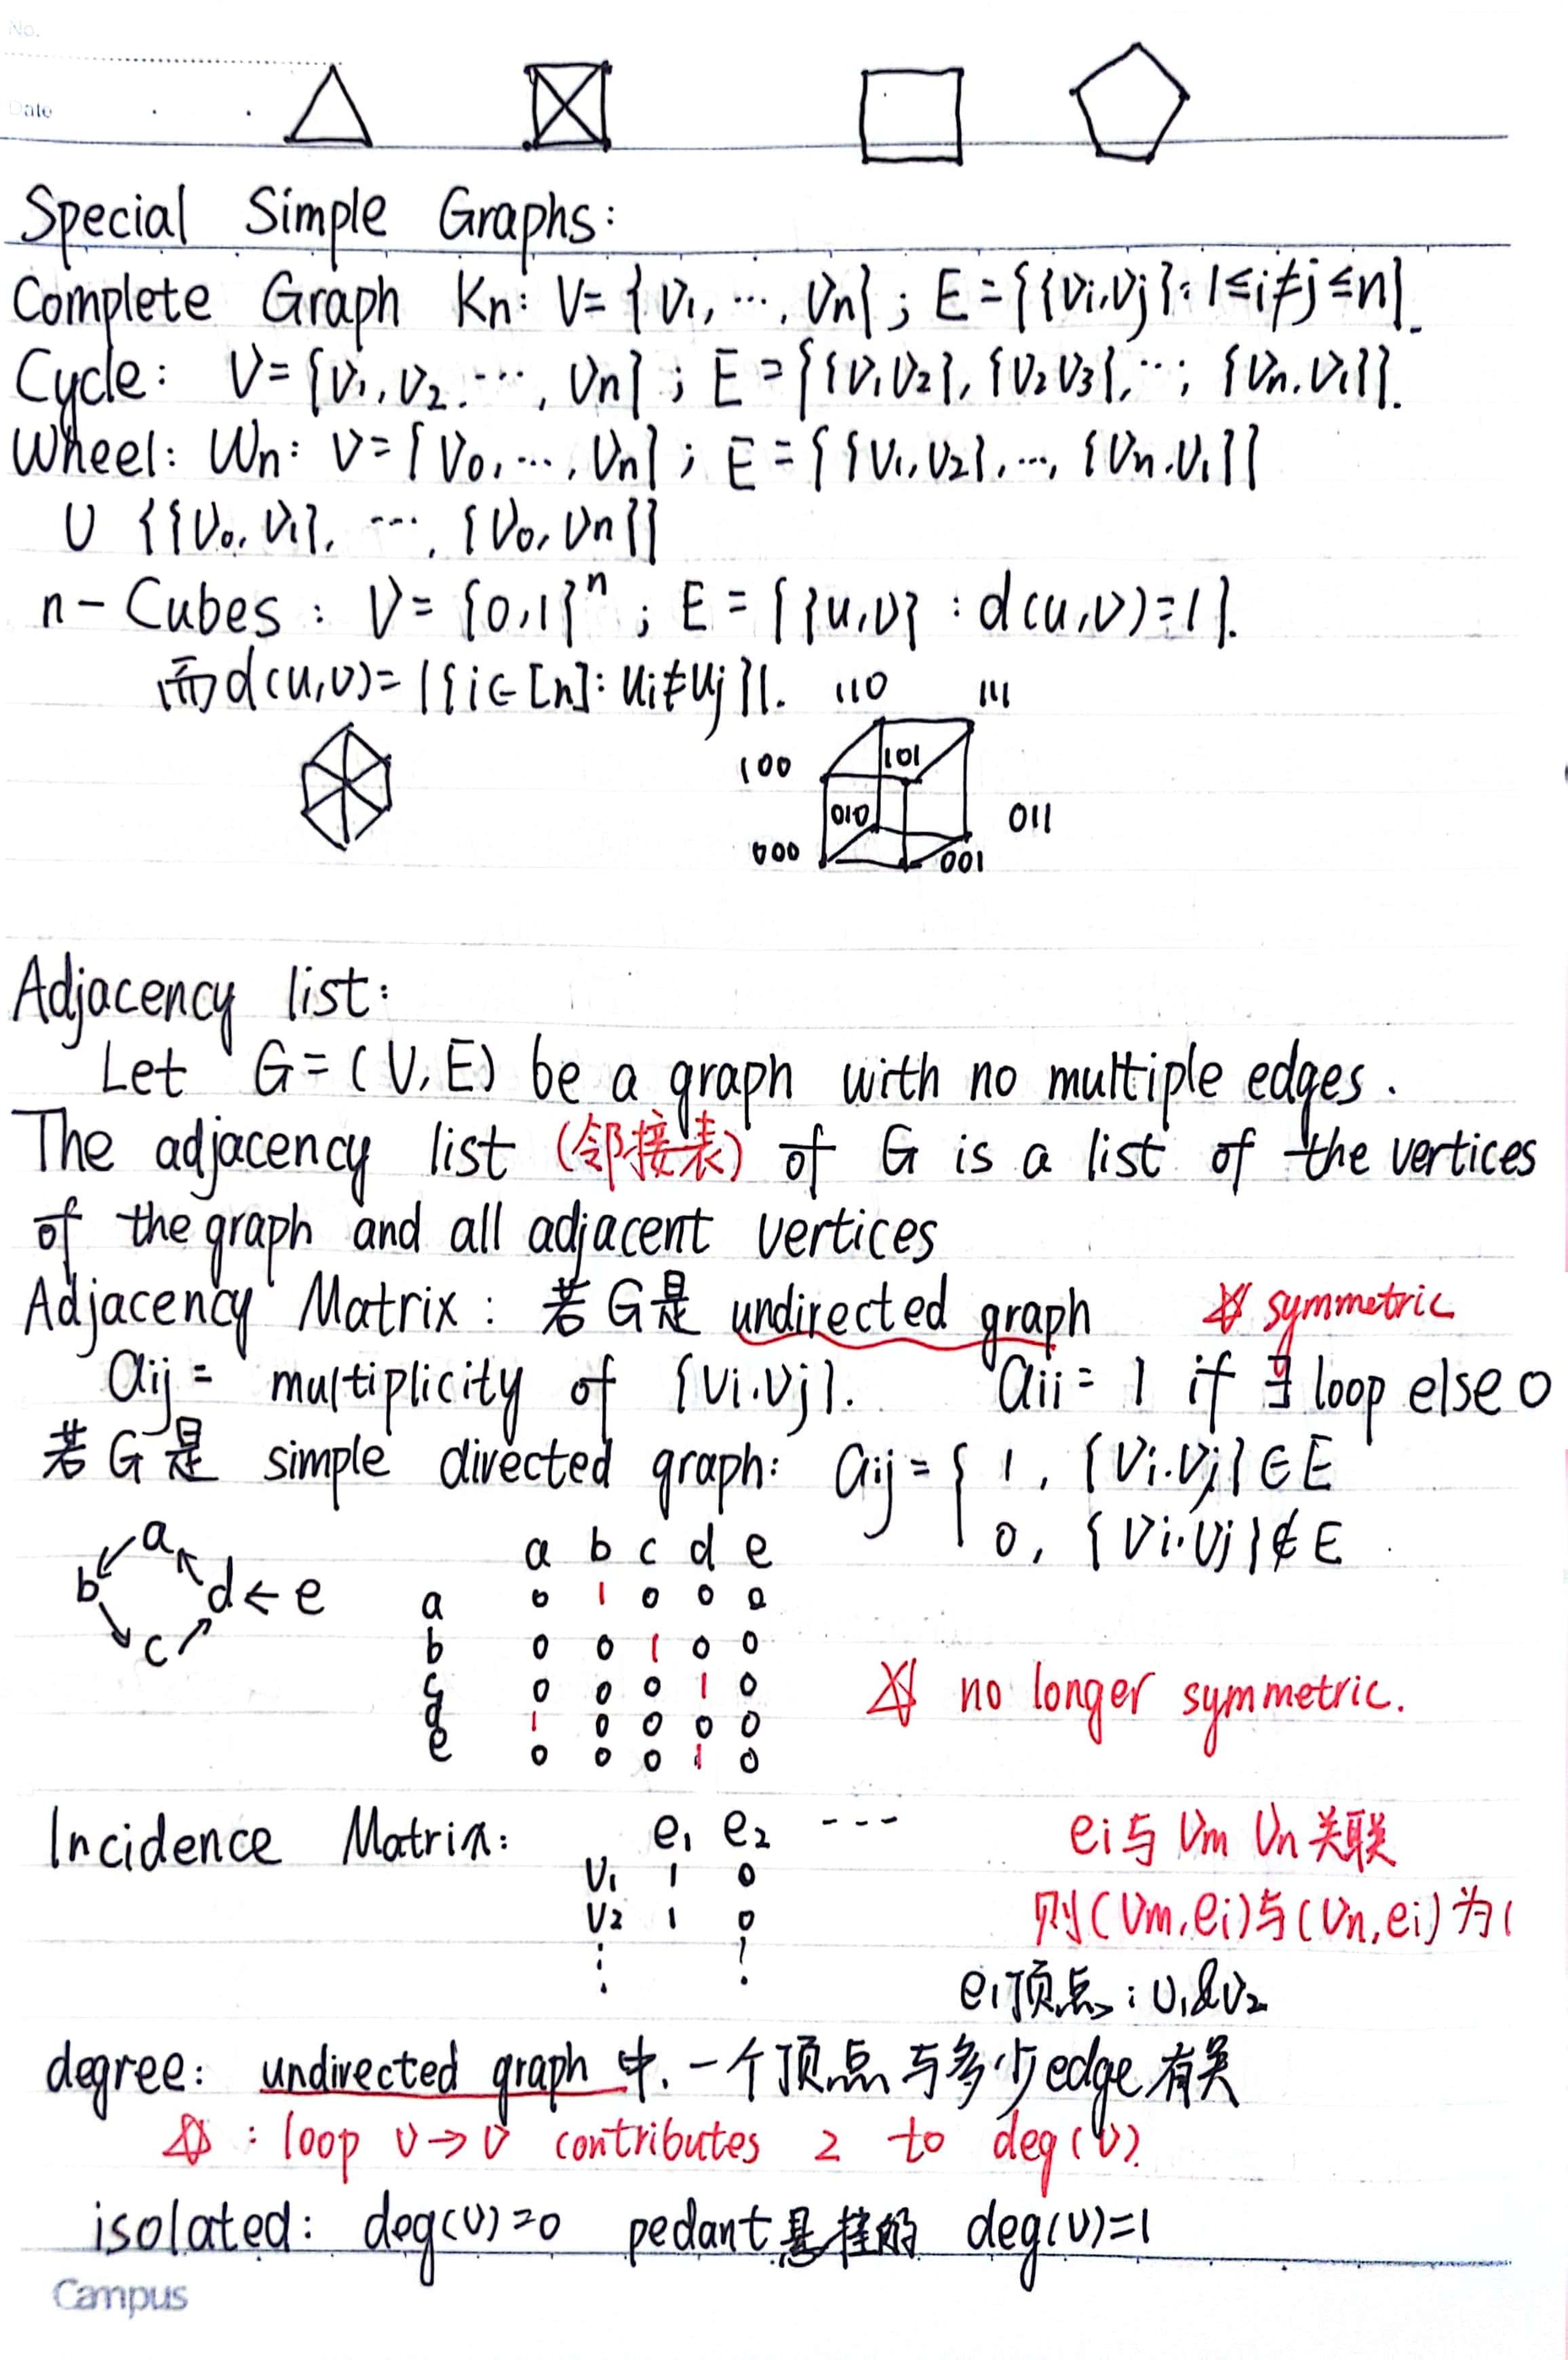 No.
Date
Special Simple Graphs:
Complete Graph Kn: V={v1, ..., vn}; E={{vi,vj}: 1≤i≠j≤n}.
Cycle: V={v1,v2, ..., vn}; E={{v1v2},{v2v3}, ..., {vn,v1}}.
Wheel: Wn: V={v0, ..., vn}; E={{v1,v2}, ..., {vn,v1}}
∪ {{v0,v1}, ..., {v0,vn}}
n-Cubes: V={0,1}ⁿ; E={{u,v}: d(u,v)=1}.
而d(u,v)=|{i∈[n]: ui≠uj}|.
110 111
100 101
010 011
000 001
Adjacency list:
Let G=(V,E) be a graph with no multiple edges.
The adjacency list (邻接表) of G is a list of the vertices
of the graph and all adjacent vertices
Adjacency Matrix: 若G是 undirected graph ☆ symmetric
aij = multiplicity of {vi,vj}. aii = 1 if ∃ loop else 0
若G是 simple directed graph: aij = { 1, {vi,vj}∈E
0, {vi,vj}∉E
a b c d e
a 0 1 0 0 0
b 0 0 1 0 0
c 0 0 0 1 0
d 1 0 0 0 0
e 0 0 0 1 0
a
b d ← e
c
☆ no longer symmetric.
Incidence Matrix: e1 e2 ---
v1 1 0
v2 1 0
ei与 vm vn 关联
则(vm,ei)与(vn,ei)为1
e1顶点: v1&v2
degree: undirected graph 中, 一个顶点与多少edge有关
☆: loop v→v contributes 2 to deg(v).
isolated: deg(v)=0 pedant 悬挂的 deg(v)=1
Campus